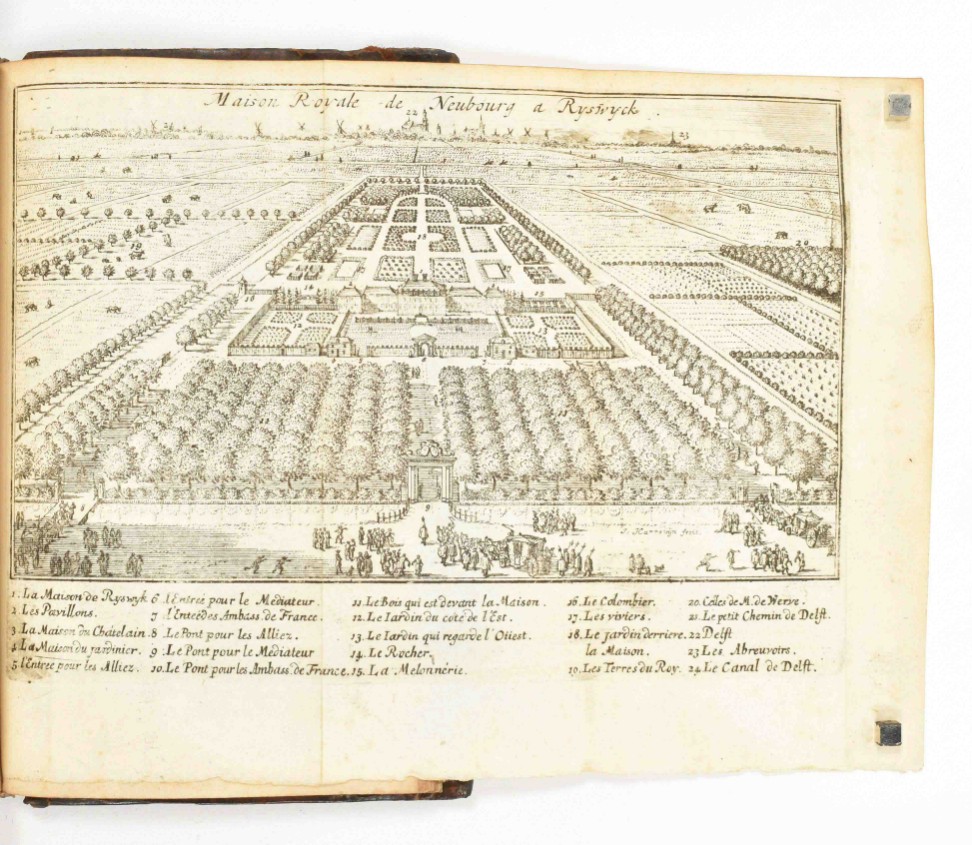 Maison Royale de Neubourg a Ryswyck.
22
23
19
20
18
16
14
15
12
13
11
11
9
1. La Maison de Ryswyk
2. Les Pavillons.
3. La Maison du Châtelain.
4. La Maison du Jardinier.
5. l'Entree pour les Alliez.
6. l'Entrée pour le Mediateur.
7. l'Entée des Ambass. de France.
8. Le Pont pour les Alliez.
9. Le Pont pour le Mediateur
10. Le Pont pour les Ambass. de France.
11. Le Bois qui est devant la Maison.
12. Le Iardin du coté de l'Est.
13. Le Iardin qui regarde l'Oüest.
14. Le Rocher.
15. La Melonnerie.
16. Le Colombier.
17. Les viviers.
18. Le jardin derriere.
la Maison.
19. Les Terres du Roy.
20. Celles de M. de Werve.
21. Le petit Chemin de Delft.
22 Delft
23 Les Abreuvoirs.
24. Le Canal de Delft.